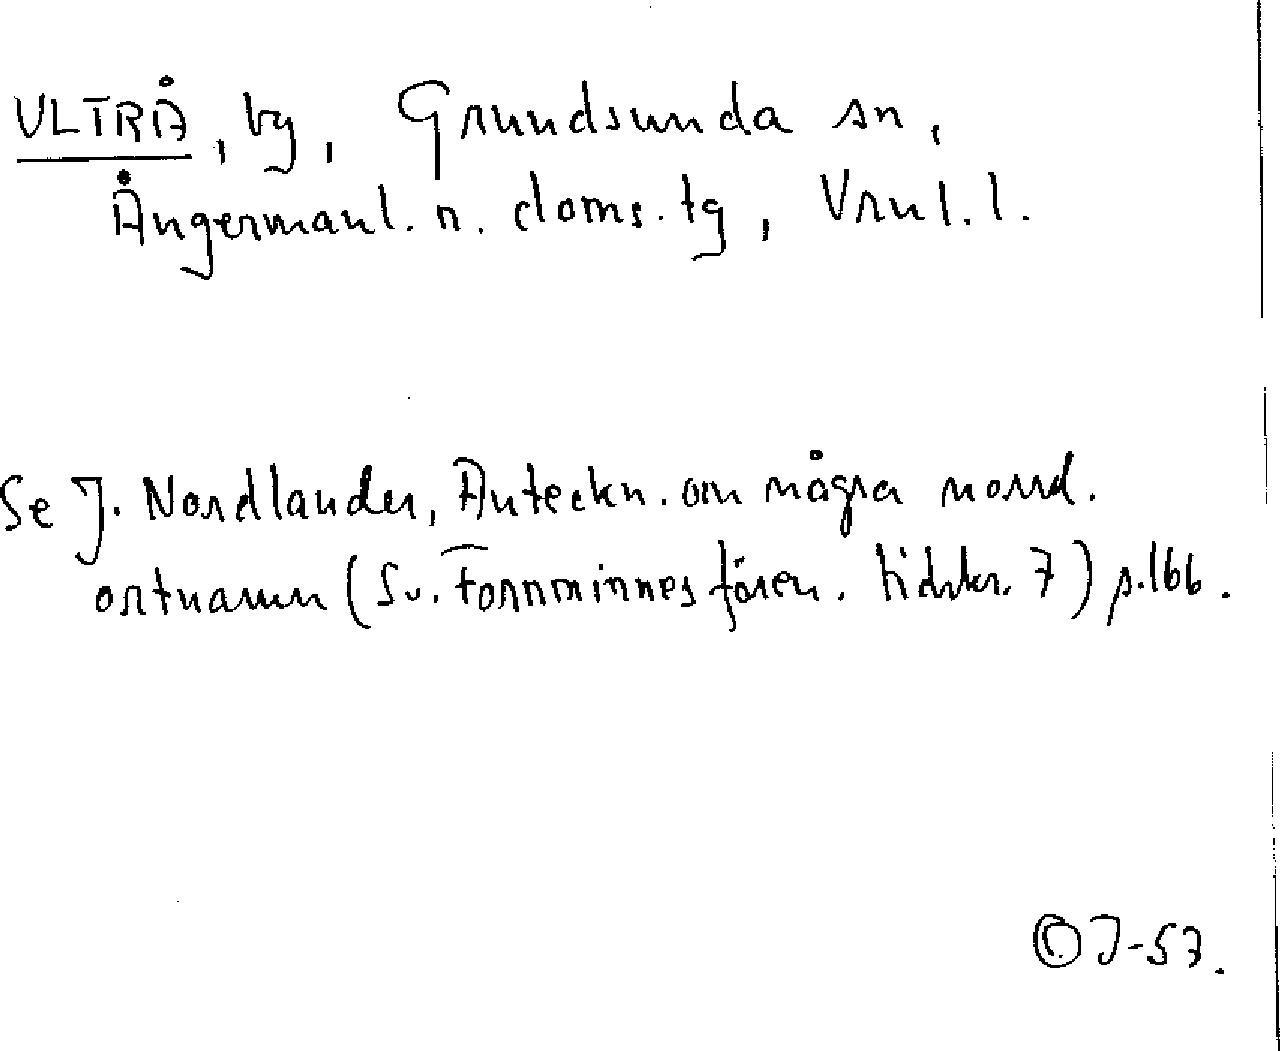 ULTRÅ, by, Grundsunda sn,
Ångermanl. n. doms. tg, Vnrl. l.
Se J. Nordlander, Anteckn. om några norrl.
ortnamn (Sv. Fornminnesfören. tidskr. 7) s. 166.
© J-53.